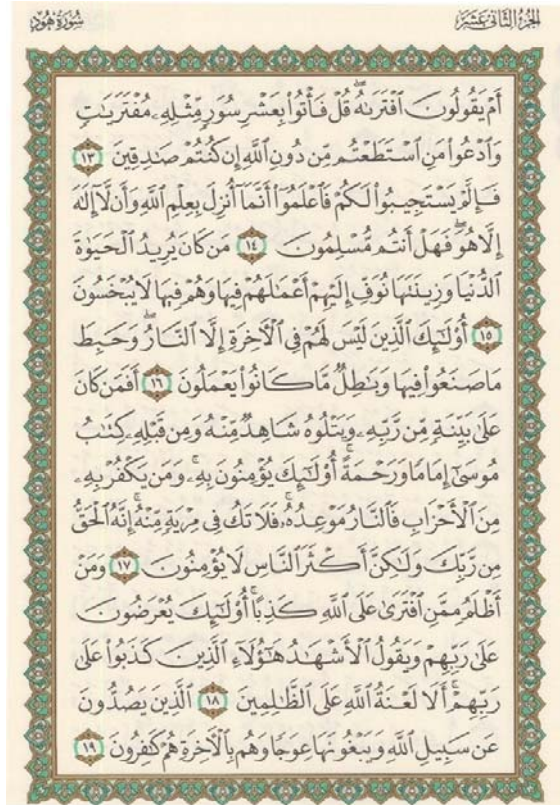 الجزء الثاني عشر
سورة هود
أَمْ يَقُولُونَ ٱفْتَرَىٰهُ ۖ قُلْ فَأْتُوا۟ بِعَشْرِ سُوَرٍۢ مِّثْلِهِۦ مُفْتَرَيَـٰتٍۢ
وَٱدْعُوا۟ مَنِ ٱسْتَطَعْتُم مِّن دُونِ ٱللَّهِ إِن كُنتُمْ صَـٰدِقِينَ ١٣
فَإِلَّمْ يَسْتَجِيبُوا۟ لَكُمْ فَٱعْلَمُوٓا۟ أَنَّمَآ أُنزِلَ بِعِلْمِ ٱللَّهِ وَأَن لَّآ إِلَـٰهَ
إِلَّا هُوَ ۖ فَهَلْ أَنتُم مُّسْلِمُونَ ١٤ مَن كَانَ يُرِيدُ ٱلْحَيَوٰةَ
ٱلدُّنْيَا وَزِينَتَهَا نُوَفِّ إِلَيْهِمْ أَعْمَـٰلَهُمْ فِيهَا وَهُمْ فِيهَا لَا يُبْخَسُونَ
١٥ أُو۟لَـٰٓئِكَ ٱلَّذِينَ لَيْسَ لَهُمْ فِى ٱلْـَٔاخِرَةِ إِلَّا ٱلنَّارُ ۖ وَحَبِطَ
مَا صَنَعُوا۟ فِيهَا وَبَـٰطِلٌۭ مَّا كَانُوا۟ يَعْمَلُونَ ١٦ أَفَمَن كَانَ
عَلَىٰ بَيِّنَةٍۢ مِّن رَّبِّهِۦ وَيَتْلُوهُ شَاهِدٌۭ مِّنْهُ وَمِن قَبْلِهِۦ كِتَـٰبُ
مُوسَىٰٓ إِمَامًۭا وَرَحْمَةً ۚ أُو۟لَـٰٓئِكَ يُؤْمِنُونَ بِهِۦ ۚ وَمَن يَكْفُرْ بِهِۦ
مِنَ ٱلْأَحْزَابِ فَٱلنَّارُ مَوْعِدُهُۥ ۚ فَلَا تَكُ فِى مِرْيَةٍۢ مِّنْهُ ۚ إِنَّهُ ٱلْحَقُّ
مِن رَّبِّكَ وَلَـٰكِنَّ أَكْثَرَ ٱلنَّاسِ لَا يُؤْمِنُونَ ١٧ وَمَنْ
أَظْلَمُ مِمَّنِ ٱفْتَرَىٰ عَلَى ٱللَّهِ كَذِبًا ۚ أُو۟لَـٰٓئِكَ يُعْرَضُونَ
عَلَىٰ رَبِّهِمْ وَيَقُولُ ٱلْأَشْهَـٰدُ هَـٰٓؤُلَآءِ ٱلَّذِينَ كَذَبُوا۟ عَلَىٰ
رَبِّهِمْ ۚ أَلَا لَعْنَةُ ٱللَّهِ عَلَى ٱلظَّـٰلِمِينَ ١٨ ٱلَّذِينَ يَصُدُّونَ
عَن سَبِيلِ ٱللَّهِ وَيَبْغُونَهَا عِوَجًۭا وَهُم بِٱلْـَٔاخِرَةِ هُمْ كَـٰفِرُونَ ١٩